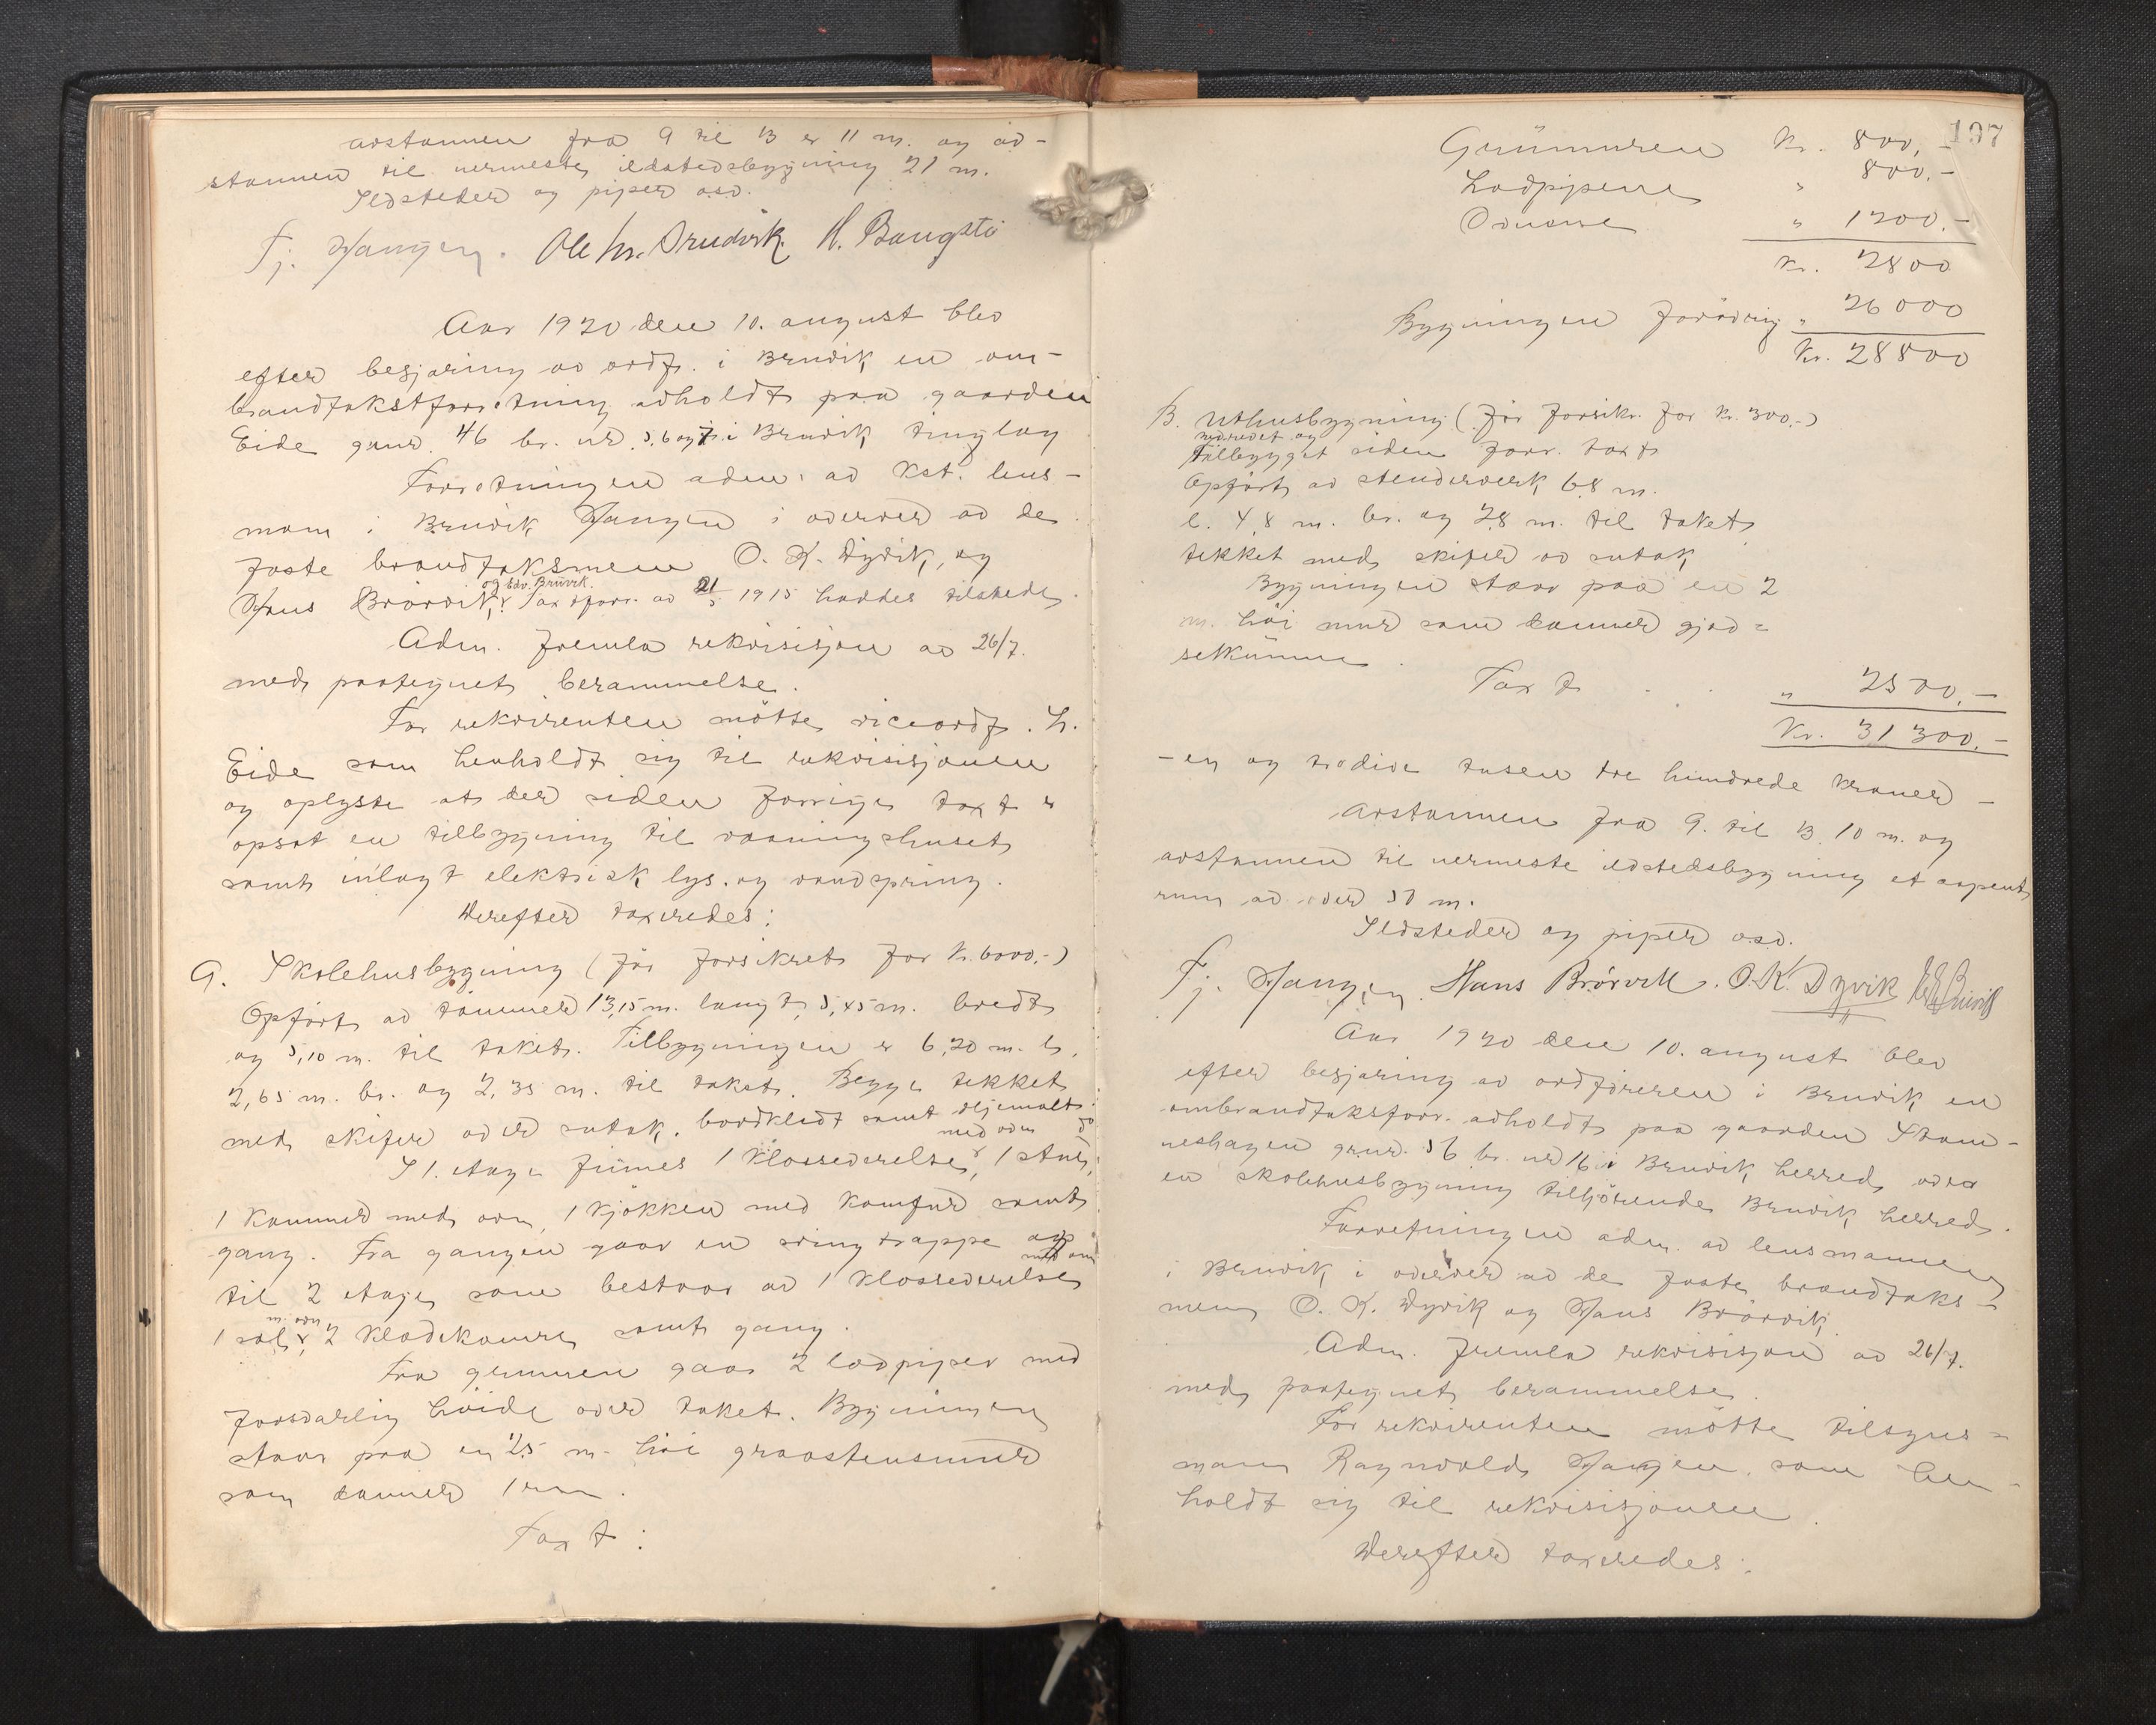 avstannen fra A til B er 11 m. og av-
stannen til nermeste ildstedsbygning 21 m.
Ildsteder og piper osv.
Fj. Stanger. Ole Hr. Drudvik H. Baugstø
Aar 1920 den 10. august blev
efter begjæring av ordf. i Bruvik en om-
brandtakstforretning avholdt paa gaarden
Eide gnr. 46 br. nr 5, 6 og 7 i Bruvik tinglag
Forretningen adm. av kst. lens-
man i Bruvik Stanger i overver av de
faste brandtaksmenn O. K. Dyvik, og
og Edv. Bruvik.
Hans Brørvik, Taxtforr. av 21/5 1915 havdes tilstede.
Adm. fremla rekvisisjon av 26/7.
med paategnet berammelse.
For rekvirenten møtte viceordf. L.
Eide som henholdt sig til rekvisisjonen
og oplyste at der siden forrige taxt er
opsat en tilbygning til vaaningshuset
samt inlagt elektrisk lys og vandspring.
Derefter taxeredes:
A. Skolehusbygning (før forsikret for Kr. 6000.-)
Opført av tømmer 13,15 m. langt, 5,45 m. bredt
og 5,10 m. til taket. Tilbygningen er 6,20 m. l.
2,65 m. br. og 2,35 m. til taket. Begge tekket
med skifer over sutak, bordkledt samt oljemalt.
med ovn do
I 1. etage finnes 1 klasseværelse, 1 stue,
1 kammer med ovn, 1 kjøkken med komfur samt
gang. Fra gangen gaar en svingtrappe op
med ovn
til 2 etage som bestaar av 1 klasseværelse
m. ovn
1 sal, 2 klædekamre samt gang.
Fra grunnen gaar 2 lodpiper med
forsvarlig høide over taket. Bygningen
staar paa en 2,5 m. høi graastensmur
som danner 1 rum.
Taxt:
197
Grunmuren Kr. 800,-
Lodpipene " 800.-
Ovnene " 1200.-
Kr. 2800
Bygningen forøvrig " 26000
Kr. 28800
B. Uthusbygning (før forsikr. for Kr. 300.-)
nedrevet og
tilbygget siden forr. taxt
Opført av stenderverk 6,8 m.
l. 4,8 m. br. og 2,8 m. til taket
tekket med skifer av sutak
Bygningen staar paa en 2
m. høi mur som danner gjød=
selkumme.
Taxt . . " 2500.-
Kr. 31300.-
- en og tredive tusen tre hundrede kroner -
Avstannen fra A. til B 10 m. og
avstannen til nermeste ildstedsbygning et aapent
rum av over 50 m.
Ildsteder og piper osv.
Fj. Stanger. Hans Brørvik. O. K. Dyvik
Aar 1920 den 10. august blev
efter begjæring av ordføreren i Bruvik en
ombrandtaksforr. avholdt paa gaarden Stam-
neshagen gr.nr. 56 br. nr 16 i Bruvik herred, over
en skolehusbygning tilhørende Bruvik herred.
Forretningen adm. av lensmannen
i Bruvik i overver av de faste brandtaks-
menn O. K. Dyvik og Hans Brørvik.
Adm. fremla rekvisisjon av 26/7.
med paategnet berammelse.
For rekvirenten møtte tilsyns=
mann Ragnvald Stanger som hen-
holdt sig til rekvisisjonen.
Derefter taxeredes: